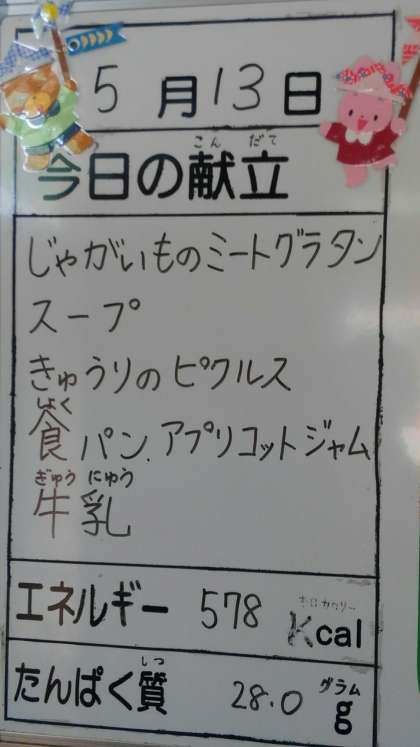 5月13日
こんだて
今日の献立
じゃがいものミートグラタン
スープ
きゅうりのピクルス
しょく
食パン.アプリコットジャム
ぎゅうにゅう
牛乳
キロカロリー
エネルギー 578 Kcal
しつ グラム
たんぱく質 28.0 g